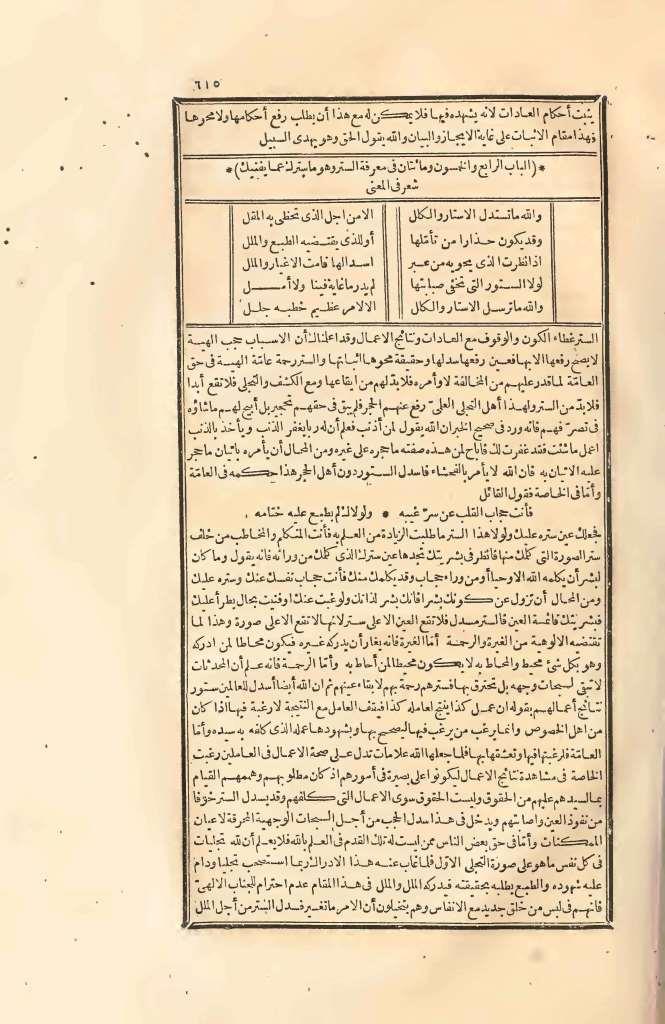 ٦١٥
يثبت أحكام العادات لانه يشهده فيها فلا يمكن له مع هذا أن يطلب رفع أحكامها ولا محوها
فهذا مقام الاثبات على غاية الايجاز والبيان والله يقول الحق وهو يهدى السبيل
*(الباب الرابع والخمسون ومائتان فى معرفة الستر وهو ما سترك عما يفنيك)*
شعر فى المعنى
والله ما تستدل الاستار والكلل الا من اجل الذى تحظى به المقل
وقد يكون حذارا من تأملها أو للذى يقتضيه الطبع والملل
اذا نظرت الذى يحويه من عبر اسدالها قامت الاغيار والملل
لولا الستور التى تخفى صبابتها لم يدر ما غاية فينا ولا أمل
والله ما ترسل الاستار والكلل الا لامر عظيم خطبه جلل
الستر غطاء الكون والوقوف مع العادات ونتائج الاعمال وقد اعلمناك أن الاسباب حجب الهية
لا يصح رفعها الا بها فعين رفعها سدلها وحقيقة محوها اثباتها والستر رحمة عامة الهية فى حق
العامة لما قدر عليهم من المخالفة لاوامره فلا بد لهم من ايقاعها ومع الكشف والتجلى فلا تقع أبدا
فلا بد من الستر ولهذا أهل التجلى العلمى رفع عنهم الحجر فلم يبق فى حقهم تحجير بل أبيح لهم ما شاؤه
فى تصرفهم فانه ورد فى صحيح الخبر ان الله يقول لمن أذنب فعلم أن له ربا يغفر الذنب ويأخذ بالذنب
اعمل ما شئت فقد غفرت لك فاباح لمن هذه صفته ما حجره على غيره ومن المحال أن يأمره باتيان ما حجر
عليه الاتيان به فان الله لا يأمر بالفحشاء فاسدل الستور دون أهل الحجر هذا حكمه فى العامة
وأما فى الخاصة فقول القائل
فأنت حجاب القلب عن سر غيبه * ولولاك لم يطبع عليه ختامه
فجعلك عين ستره عليك ولولا هذا الستر ما طلبت الزيادة من العلم به فأنت المتكلم والمخاطب من خلف
ستر الصورة التى كلمك منها فانظر فى بشريتك تجدها عين سترك الذى كلمك من ورائه فانه يقول وما كان
لبشر أن يكلمه الله الا وحيا أو من وراء حجاب وقد يكلمك منك فأنت حجاب نفسك عنك وستره عليك
ومن المحال أن تزول عن كونك بشرا فانك بشر لذاتك ولو غبت عنك أو فنيت بحال يطرأ عليك
فبشريتك قائمة العين فالستر مسدل فلا تقع العين الا على ستر لانها لا تقع الا على صورة وهذا لما
تقتضيه الالوهية من الغيرة والرحمة أما الغيرة فانه يغار أن يدركه غيره فيكون محاطا لمن ادركه
وهو بكل شئ محيط والمحاط به لا يكون محيطا لمن أحاط به وأما الرحمة فانه علم أن المحدثات
لا تبقى لسبحات وجهه بل تحترق بها فسترهم رحمة بهم لابقاء عينهم ثم ان الله أيضا أسدل للعالمين ستور
نتائج أعمالهم بقوله ان عمل كذا ينتج لعامله كذا فيقف العامل مع النتيجة لا رغبة فيها اذا كان
من اهل الخصوص وانما يرغب من يرغب فيها ليصحح بها وبشهودها عمله الذى كلفه به سيده وأما
العامة فلرغبتها فيها وتعشقها بها فلما جعلها الله علامات تدل على صحة الاعمال فى العاملين رغبت
الخاصة فى مشاهدة نتائج الاعمال ليكونوا على بصيرة فى أمورهم اذ كان مطلوبهم وهمهم القيام
بما لسيدهم عليهم من الحقوق وليست الحقوق سوى الاعمال التى كلفهم وقد يسدل الستر خوفا
من نفوذ العين واصابتهم ويدخل فى هذا سدل الحجب من أجل السبحات الوجهية المحرقة لاعيان
الممكنات وأما فى حق بعض الناس ممن ليست له تلك القدم فى العلم بالله فلا يعلم أن لله تجليات
فى كل نفس ما هو على صورة التجلى الاول فلما غاب عنه هذا الادراك ربما استصحب تجليا ودام
عليه شهوده والطبع يطلبه بحقيقته فيدركه الملل والملل فى هذا المقام عدم احترام للجناب الالهى
فانهم فى لبس من خلق جديد مع الانفاس وهم يتخيلون أن الامر ما تغير فسدل الستر من أجل الملل